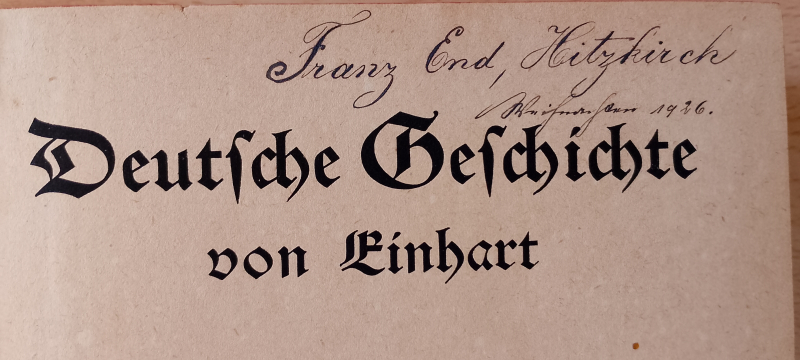 Franz End, Hitzkirch
Weihnachten 1926.
Deutſche Geſchichte
von Einhart